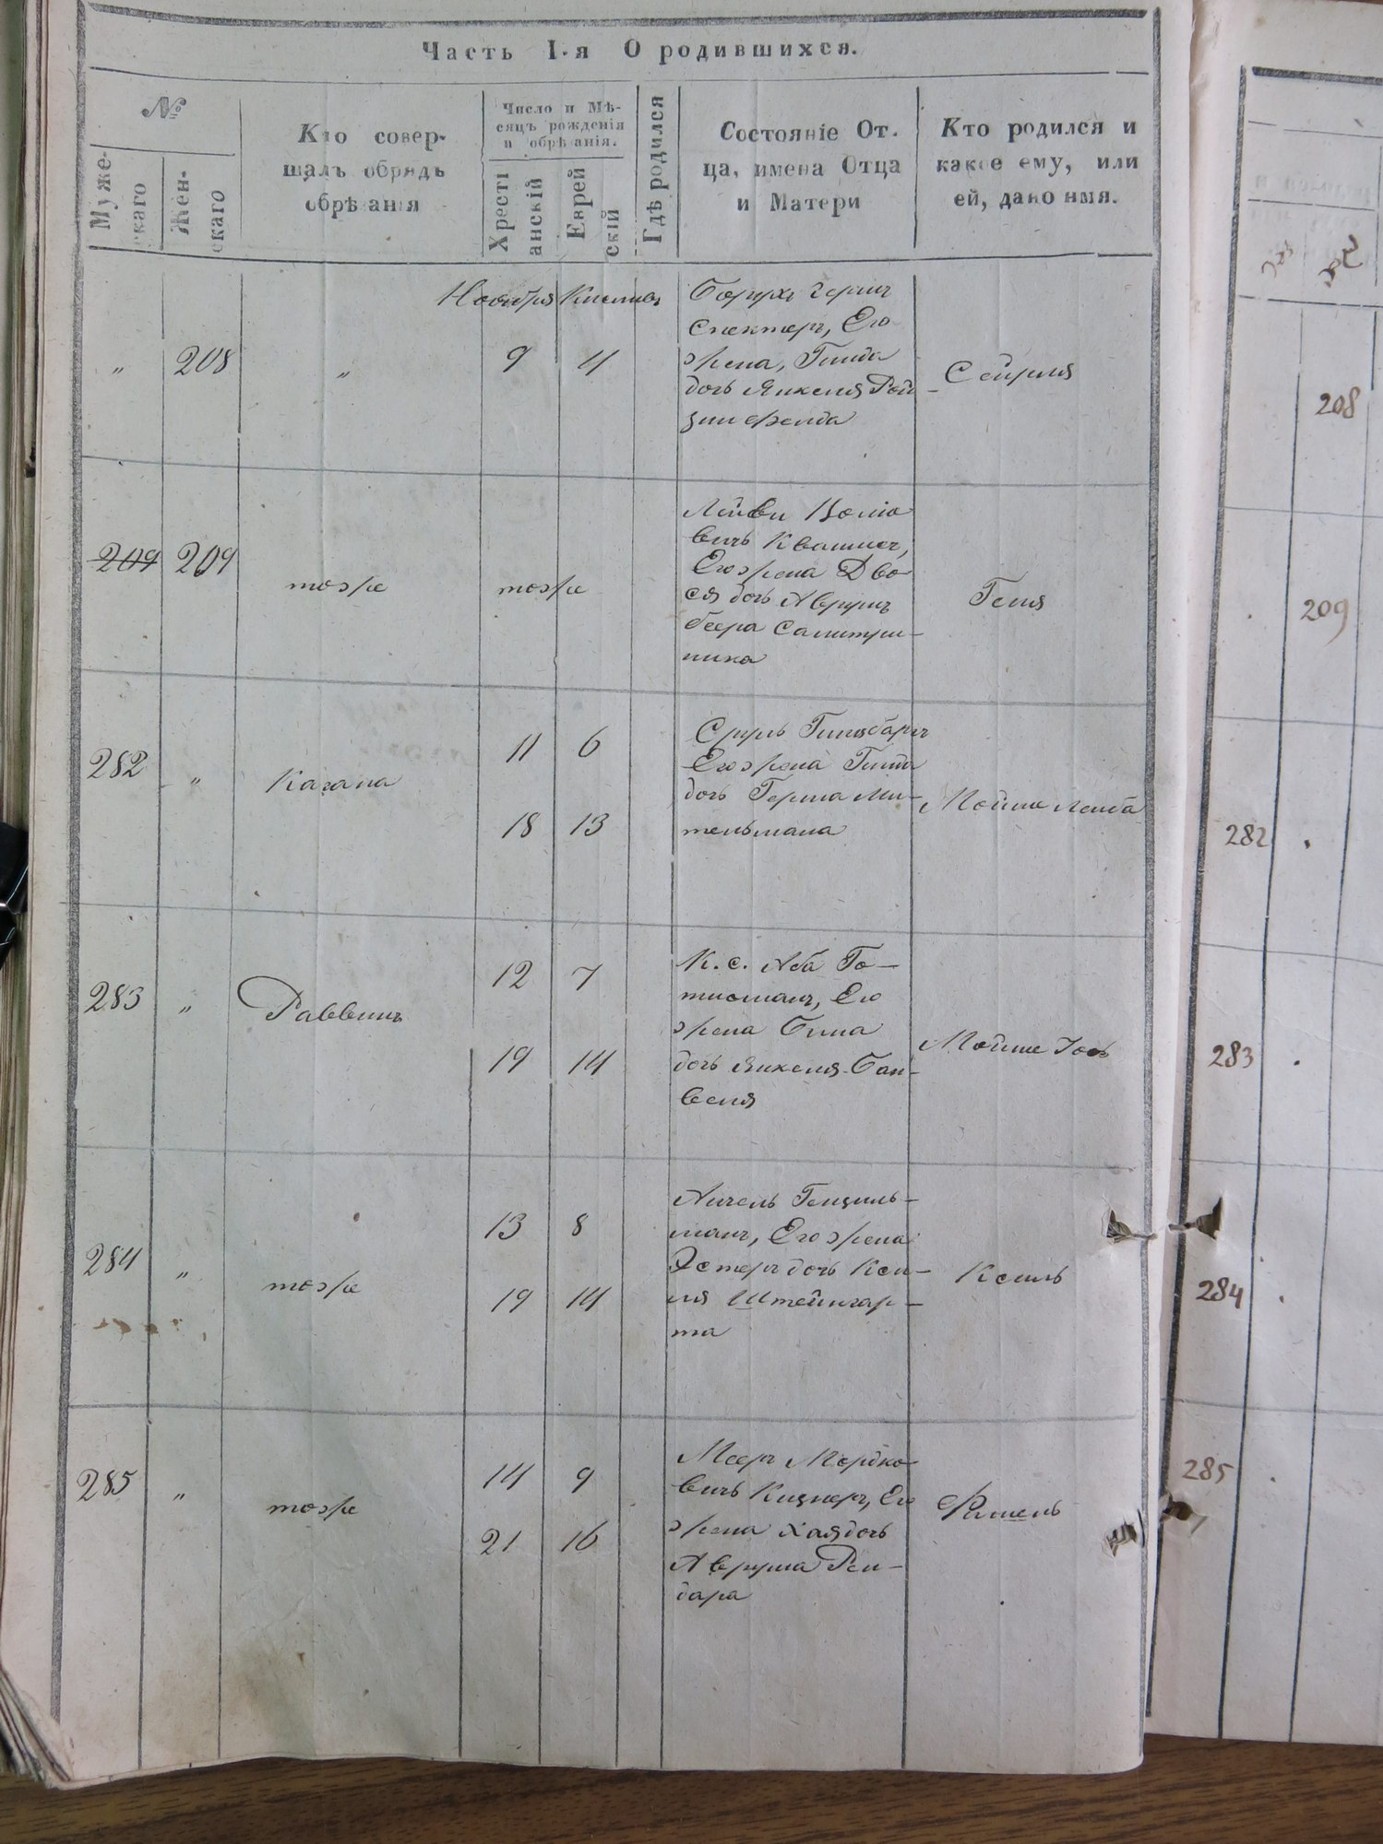 Часть I-я О родившихся.
№
Мужескаго
Женскаго
Кто совер-
шалъ обрядъ
обрѣзанія
Число и Мѣ-
сяцъ рожденія
и обрѣзанія.
Хрестіанскій
Еврейскій
Гдѣ родился
Состояніе От-
ца, имена Отца
и Матери
Кто родился и
какое ему, или
ей, дано имя.
Ноября Кислива
" 208 " 9 4
Борухъ Гершъ
Спекторъ, Его
жена, Гинда
дочь Янкеля Рой
зинфельда
Сейрля
209 209 тоже тоже
Лейви
вичъ Квашнеч,
Его жена Дво-
ся дочь Аврумъ
беера Салитрин-
ника
Геня
282 " Кагана
11 6
18 13
Сруль Гинзбаргъ
Его жена Гитла
дочь Герша Ми-
тельмана
Мойше Лейба
283 " Раввинъ
12 7
19 14
К. с. Аба Го-
тисманъ, Его
жена Бина
дочь Янкеля-Бан-
веля
Мойше Іось
284 " тоже
13 8
19 14
Анчель Генциль-
манъ, Его жена
Эстеръ дочь Кси-
ля Штейнгар-
та
Ксиль
285 " тоже
14 9
21 16
Мееръ Мордко-
вичъ Кицнеръ, Его
жена Хая дочь
Аврума Рен-
дара
Фишель
208
209
282
283
284
285